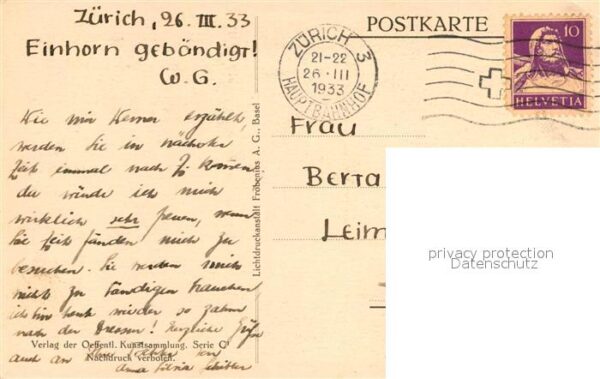 Zürich, 26. III. 33
Einhorn gebändigt!
W. G.
Wie mir Werner erzählt,
werden Sie in nächster
Zeit einmal nach Z. kommen
da würde ich mich
wirklich sehr freuen, wenn
Sie Zeit fänden mich zu
besuchen. Sie werden mich
nicht zu bändigen brauchen
ich bin heute wieder so zahm
nach der Dressur! Herzliche Grüsse
auch an Ihre von
Anna
Verlag der Oeffentl. Kunstsammlung. Serie C
Nachdruck verboten.
Lichtdruckanstalt Frobenius A. G., Basel
POSTKARTE
ZÜRICH 3
21-22
26·III
1933
HAUPTBAHNHOF
10
HELVETIA
Frau
Berta
Leim
privacy protection
Datenschutz